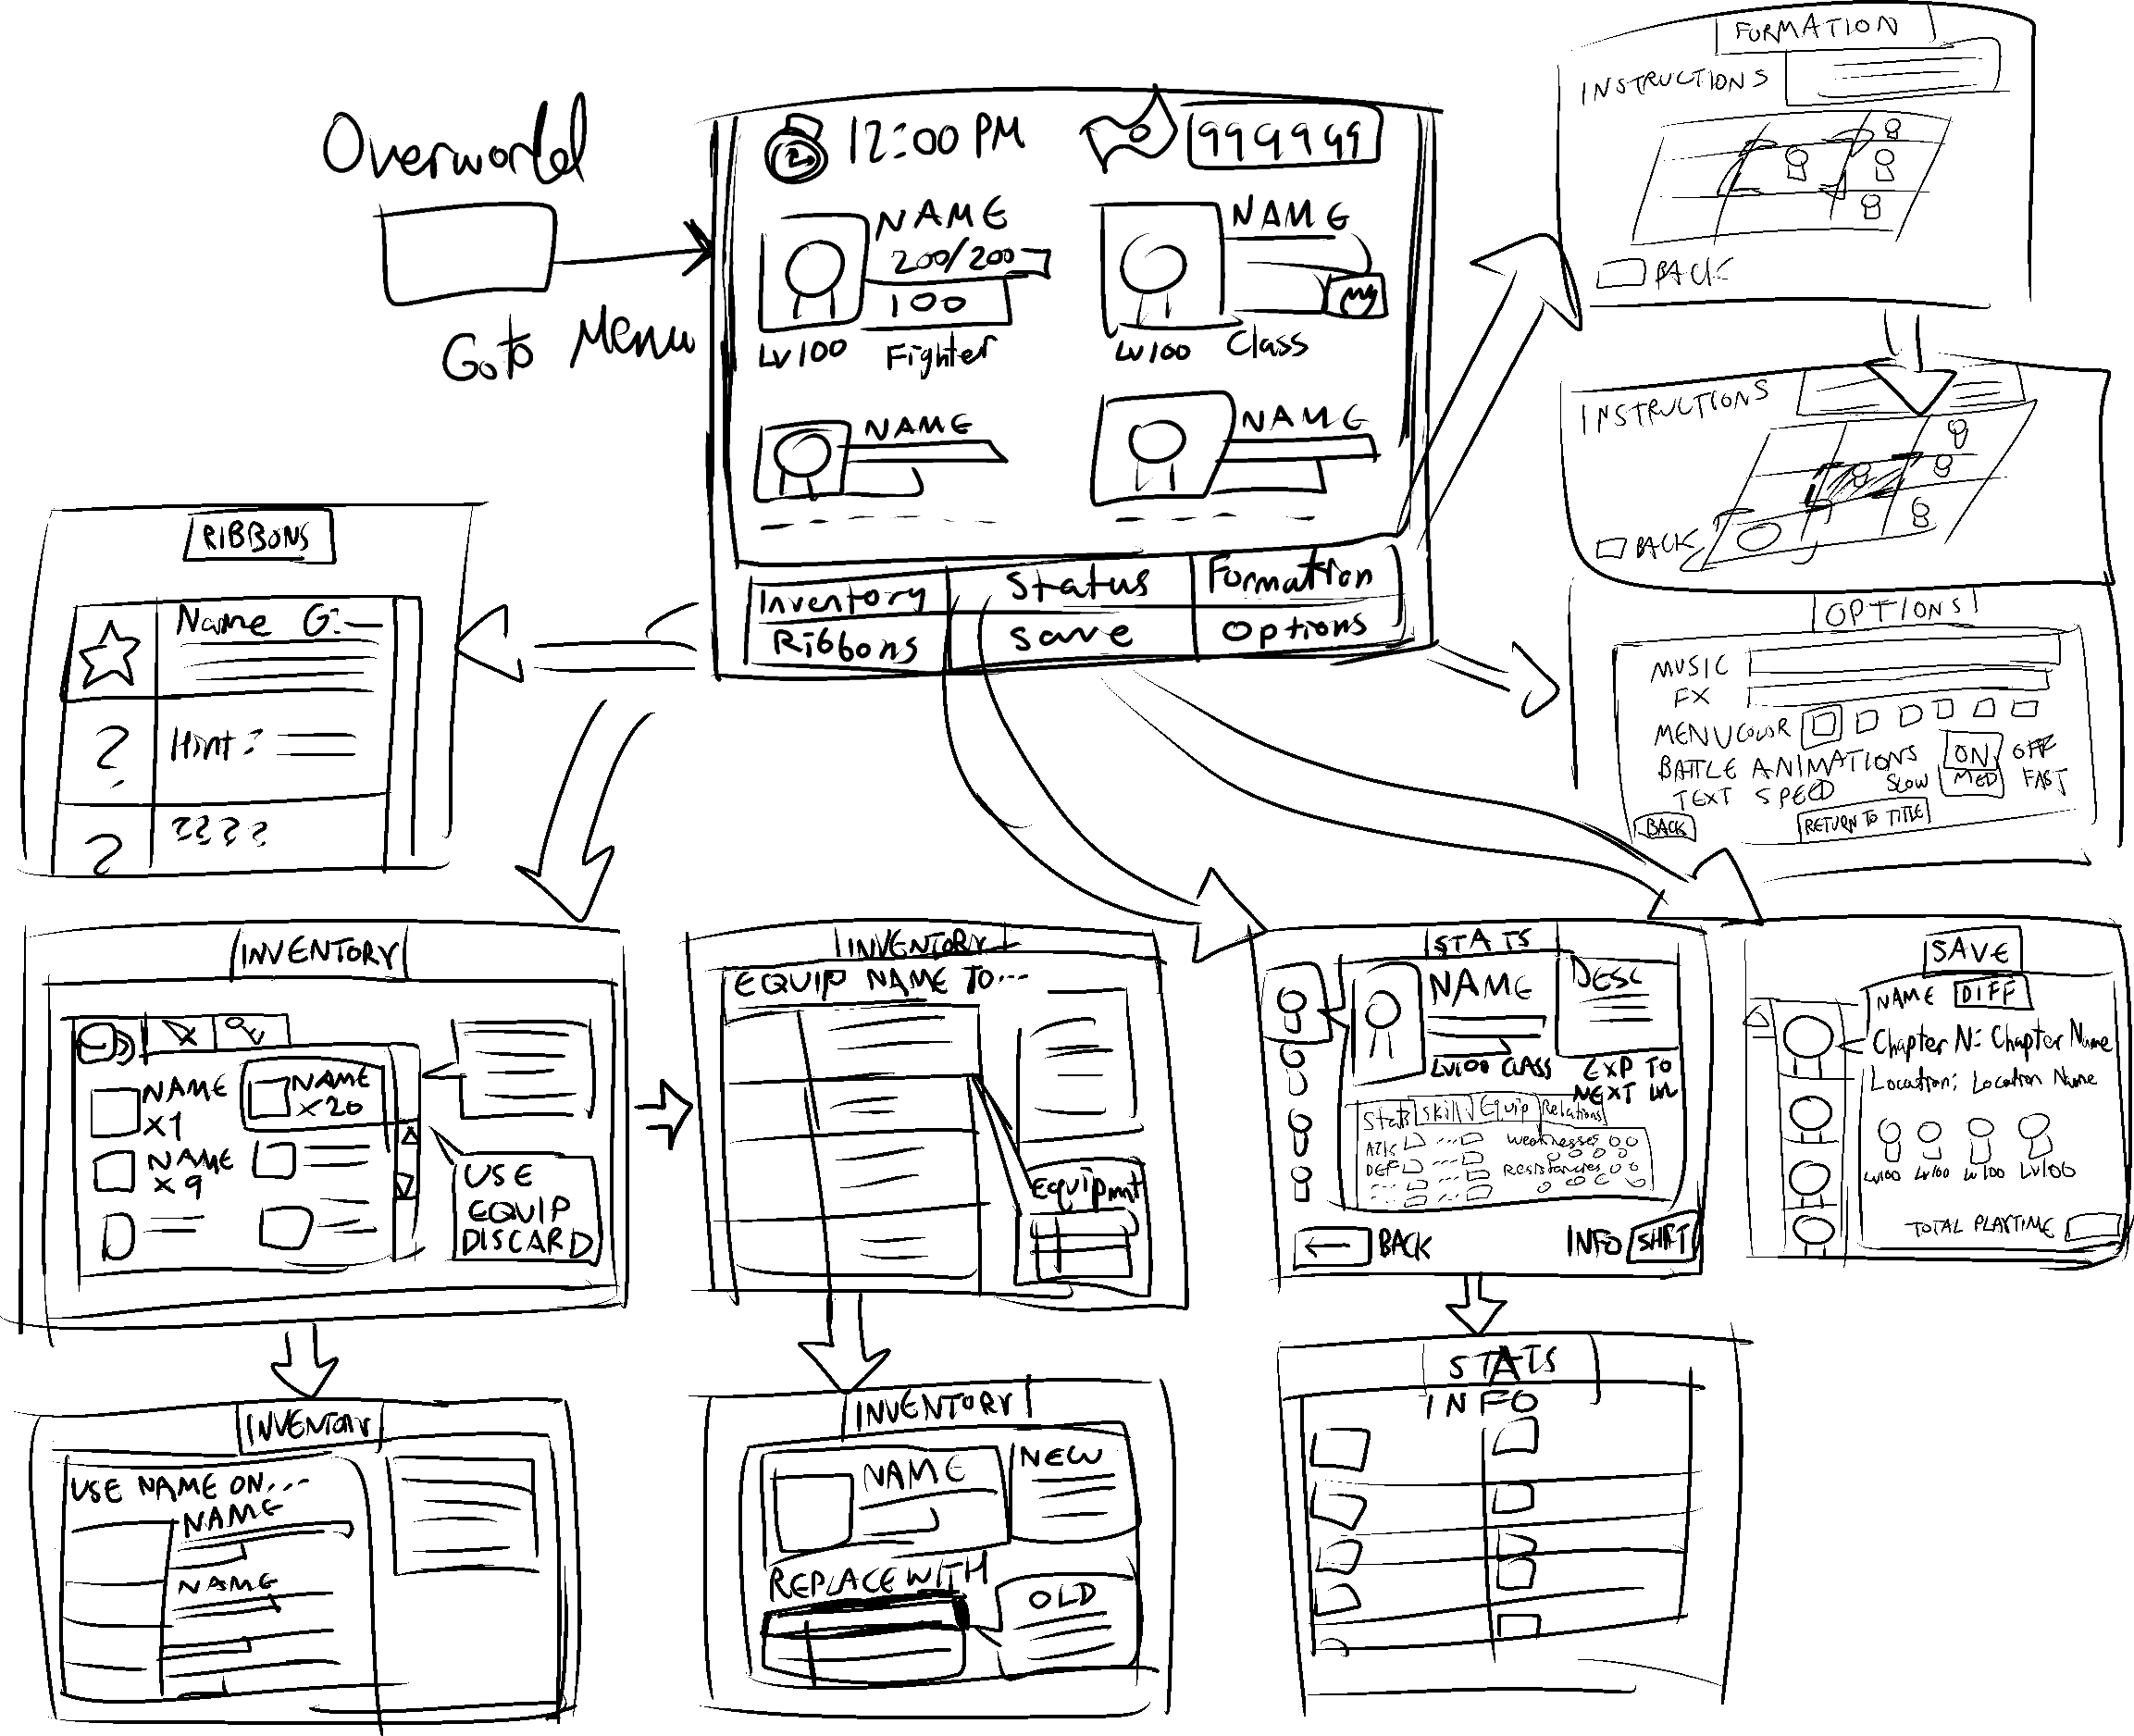 Overworld
Go to Menu
12:00 PM
999999
NAME
200/200
100
Lv100 Fighter
NAME
Lv100 Class
NAME
NAME
Inventory Status Formation
Ribbons Save Options
FORMATION
INSTRUCTIONS
BACK
INSTRUCTIONS
BACK
OPTIONS
MUSIC
FX
MENU COLOR
BATTLE ANIMATIONS ON OFF
TEXT SPEED SLOW MED FAST
BACK
RETURN TO TITLE
RIBBONS
Name G:
?
Hint:
?
????
INVENTORY
NAME
x1
NAME
x20
NAME
x9
USE
EQUIP
DISCARD
INVENTORY
EQUIP NAME TO...
Equipmnt
STATS
NAME
DESC
Lv100 CLASS
EXP TO
NEXT LVL
Stats Skill Equip Relations
ATK
DEF
Weaknesses
Resistancies
BACK
INFO SHIFT
SAVE
NAME DIFF
Chapter N: Chapter Name
Location: Location Name
Lv100 Lv100 Lv100 Lv100
TOTAL PLAYTIME
INVENTORY
USE NAME ON...
NAME
NAME
INVENTORY
NAME
NEW
REPLACE WITH
OLD
STATS
INFO